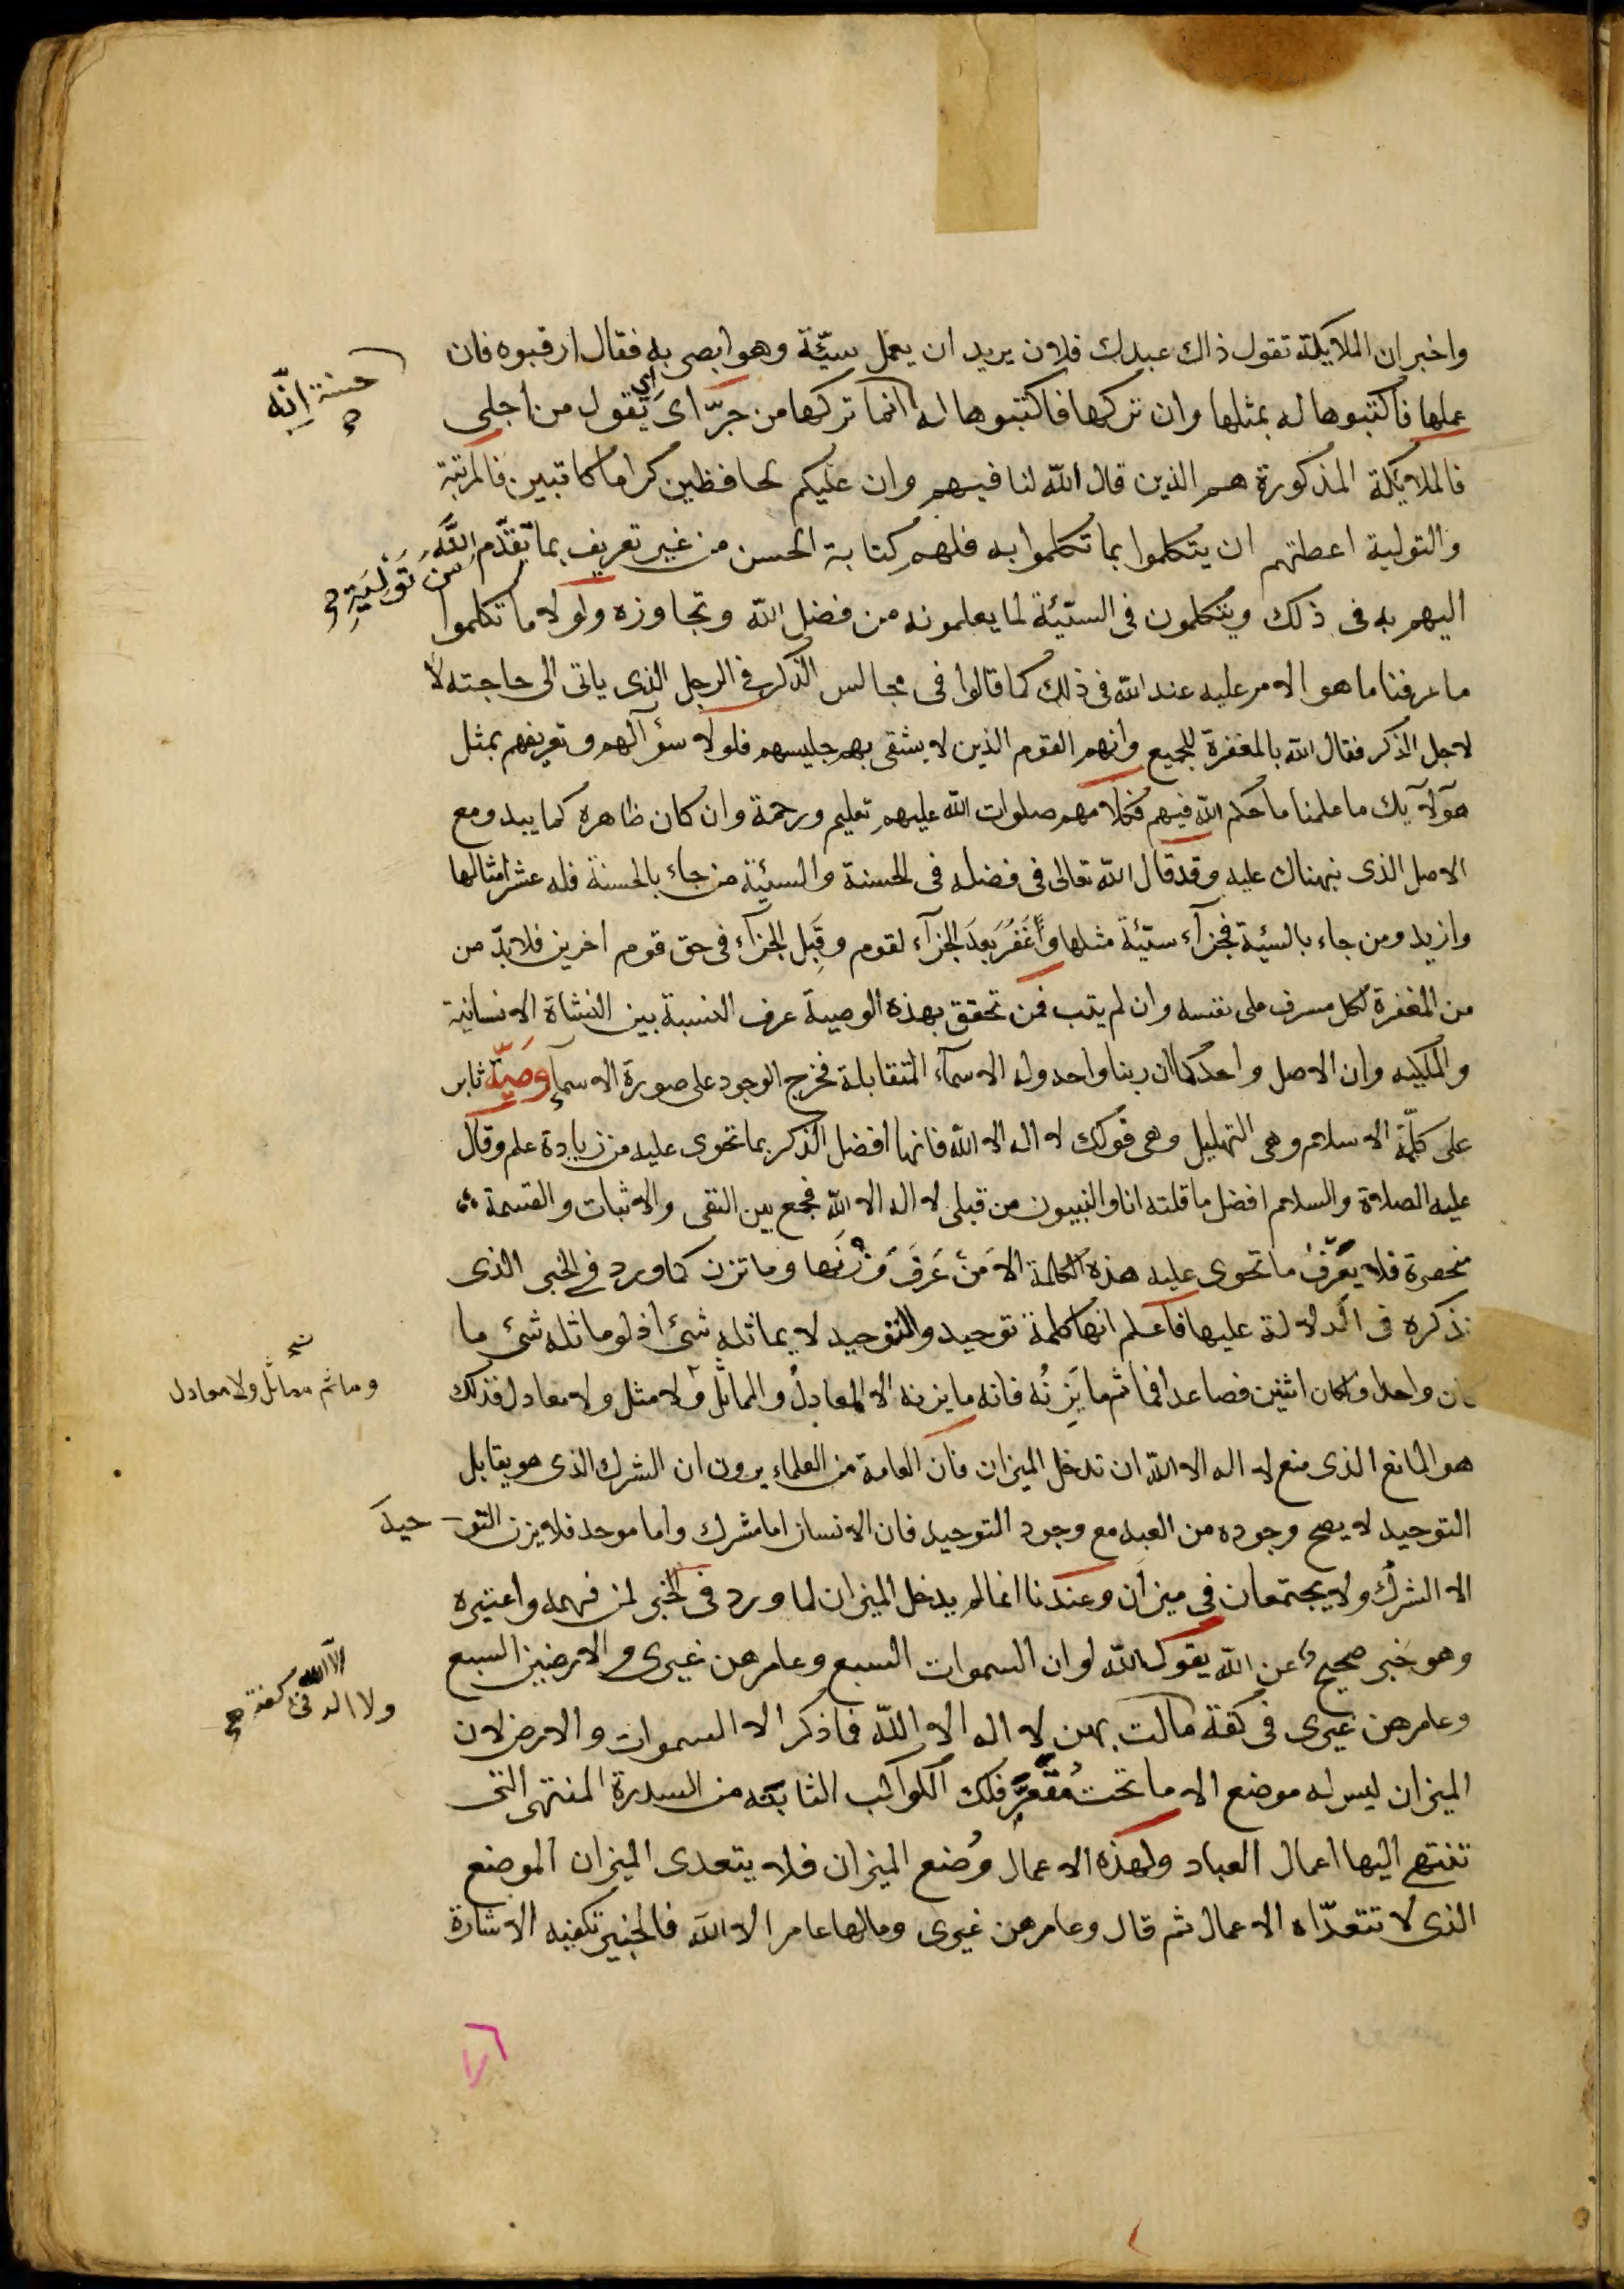 واخبر ان الملايكة تقول ذاك عبدك فلان يريد ان يعمل سيّئة وهو ابصر به فقال ارقبوه فان
عملها فاكتبوها له بمثلها وان تركها فاكتبوها له انما تركها من جرّاى اى يقول من اجلى
حسنة انّه صح
فالملايكة المذكورة هم الذين قال الله لنا فيهم وان عليكم لحافظين كراما كاتبين فالمرتبة
والتولية اعطتهم ان يتكلموا بما تكلموا به فلهم كتابة الحسن من غير تعريف بما تقدّم اللّه
من تَوْلِيَةِ صح
اليهم به فى ذلك ويتكلمون فى السّيئة لما يعلمونه من فضل الله وتجاوزه ولولا ما تكلموا
ما عرفنا ما هو الامر عليه عند الله فى ذلك كما قالوا فى مجالس الذكر فى الرجل الذى ياتى الى حاجته لا
لاجل الذكر فقال الله بالمغفرة للجميع وانهم القوم الذين لا يشقى بهم جليسهم فلولا سؤآلهم وتعريفهم بمثل
هٓولآيك ما علمنا ما حكم الله فيهم فكلامهم صلوات الله عليهم تعليم ورحمة وان كان ظاهره كما يبدو مع
الاصل الذى نبهناك عليه وقد قال الله تعالى فى فضله فى الحسنة والسيئة من جاء بالحسنة فله عشر امثالها
وازيد ومن جاء بالسيئة فجزآء سيّئة مثلها وأَغْفِرُ بَعدَ الجزآء لقوم وقَبل الجزآء فى حق قوم اخرين فلا بدّ من
من المغفرة لكل مسرف على نفسه وان لم يتب فمن تحقق بهذه الوصية عرف النسبة بين النشاة الانسانية
والملكيه وان الاصل واحد كما ان ربنا واحد وله الاسمآء المتقابلة فخرج الوجود على صورة الاسمآء وَصيّة ثابر
على كلمّة الاسلام وهى التهليل وهى قولك لا اله الا الله فانها افضل الذكر بما تحوى عليه من زيادة علم وقال
عليه الصلاة والسلام افضل ما قلته انا والنبيون من قبلى لا اله الا الله فجمع بين النفى والاثبات والقسمة
منحصرة فلا يعرّفُ ما تحوى عليه هذه الكلمة الا مَنْ عَرفَ وَزْنَها وما تزن كما ورد فى الخبر الذى
نذكره فى الدلالة عليها فاعلم انها كلمة توحيد والتوحيد لا يماثله شئ اذ لو ماثله شئ ما
كان واحدا وكان اثنين فصاعدا فما ثم ما يَزِنُه فانه ما يزنه الا المعادلُ والماثلُ ولا مثل ولا معادل فذلك
وما ثم مماثل ولا معادل
هو المانع الذى منع لا اله الا الله ان تدخل الميزان فان العامة من العلماء يرون ان الشرك الذى هو يقابل
التوحيد لا يصح وجوده من العبد مع وجود التوحيد فان الانسان اما مشرك واما موحد فلا يزن التو- حيدَ
الا الشرك ولا يجتمعان فى ميزان وعندنا انما لم يدخل الميزان لما ورد فى الخبر لمن فهمه واعتبره
وهو خبر صحيح عن الله يقول الله لو ان السموات السبع وعامرهن غيرى والارضين السبع
وعامرهن غيرى فى كفة مالت بهن لا اله الا الله فما ذكر الا السموات والارض لان
ولا اله الا الله فى كفة صح
الميزان ليس له موضع الا ما تحت مُقَعَّرِ فلك الكواكب الثابتة من السدرة المنتهى التى
تنتهى اليها اعمال العباد ولهذه الاعمال وُضع الميزان فلا يتعدى الميزان الموضع
الذى لا تتعدّاه الاعمال ثم قال وعامرهن غيرى وما لها عامر الا الله فالخبير تكفيه الاشارة